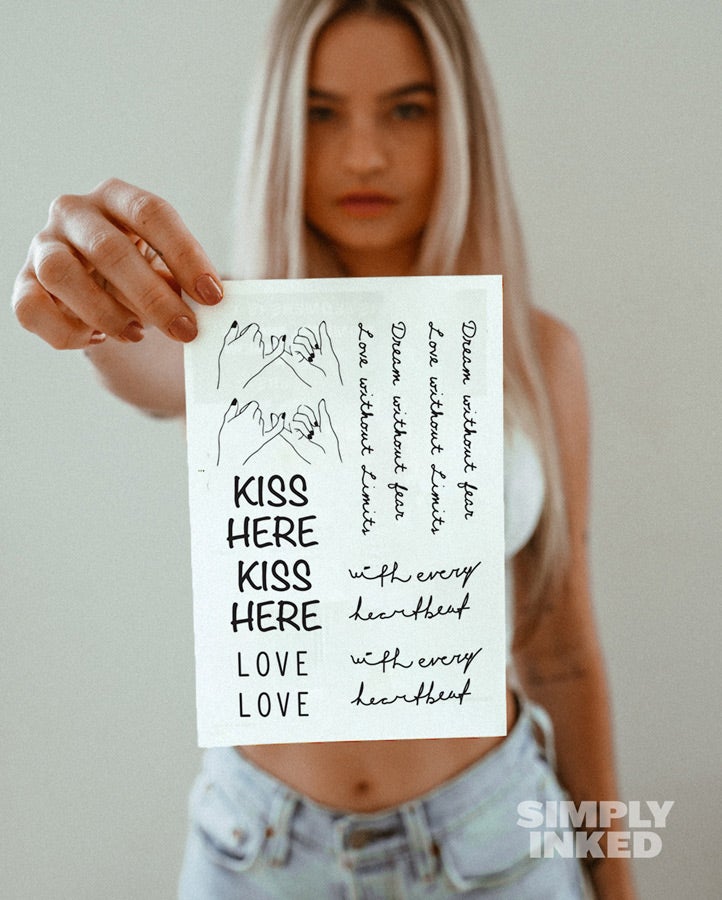 Love without Limits
Dream without fear
Love without Limits
Dream without fear
KISS
HERE
KISS
HERE
LOVE
LOVE
with every
heartbeat
with every
heartbeat
SIMPLY
INKED